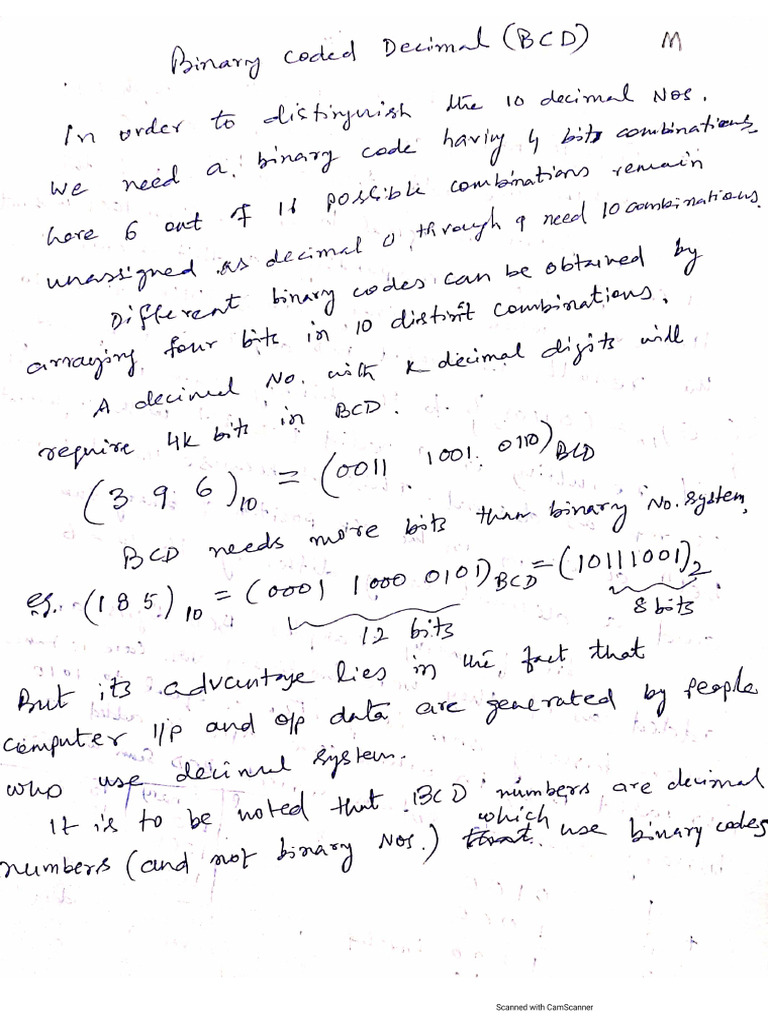 Binary Coded Decimal (BCD) M
In order to distinguish the 10 decimal Nos.
We need a binary code having 4 bits combinations,
here 6 out of 16 possible combinations remain
unassigned as decimal 0 through 9 need 10 combinations.
Different binary codes can be obtained by
arraying four bits in 10 distint combinations.
A decimal No. with K decimal digits will
require 4K bits in BCD.
(3 9 6)10 = (0011 1001 0110)BCD
BCD needs more bits than binary No. system,
eg. (185)10 = (0001 1000 0101)BCD = (10111001)2
12 bits 8 bits
But its advantage lies in the fact that
computer I/P and O/P data are generated by people
who use decimal system.
It is to be noted that BCD numbers are decimal
numbers (and not binary Nos.) which use binary codes
Scanned with CamScanner